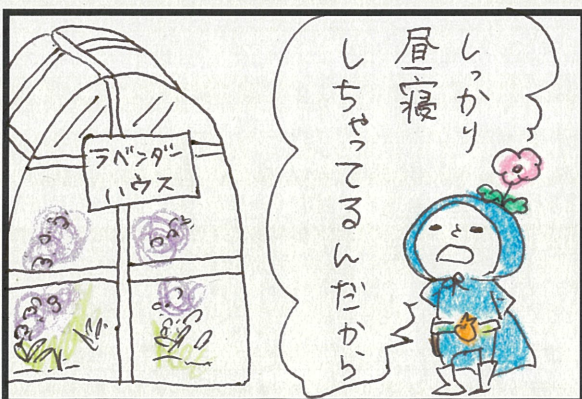 しっかり
昼寝
しちゃってるんだから
ラベンダー
ハウス